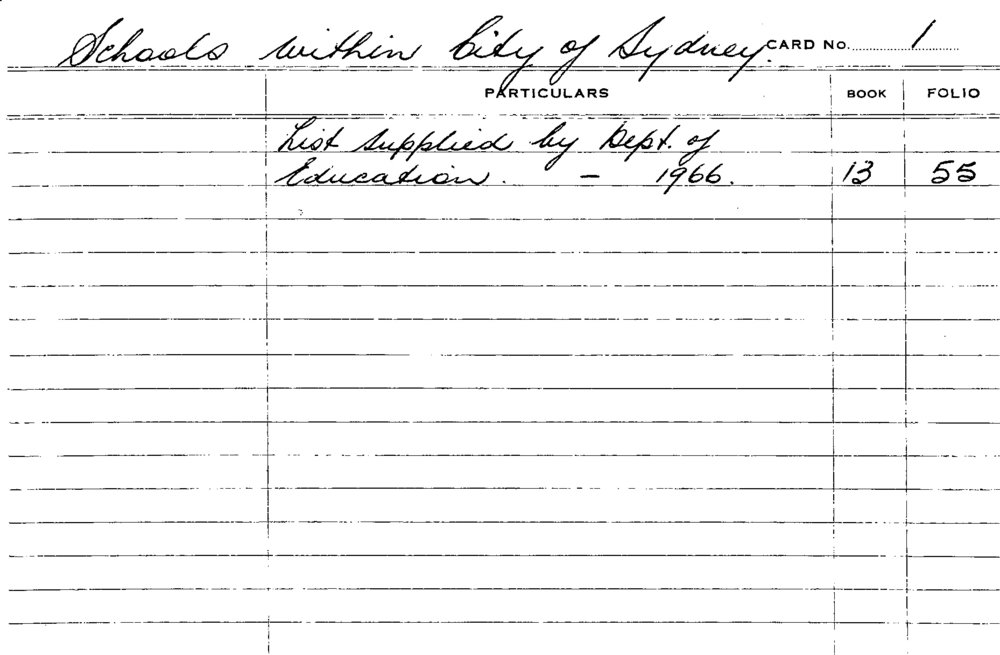 Schools within City of Sydney. CARD No. 1
PARTICULARS BOOK FOLIO
List supplied by Dept. of
Education. – 1966. 13 55